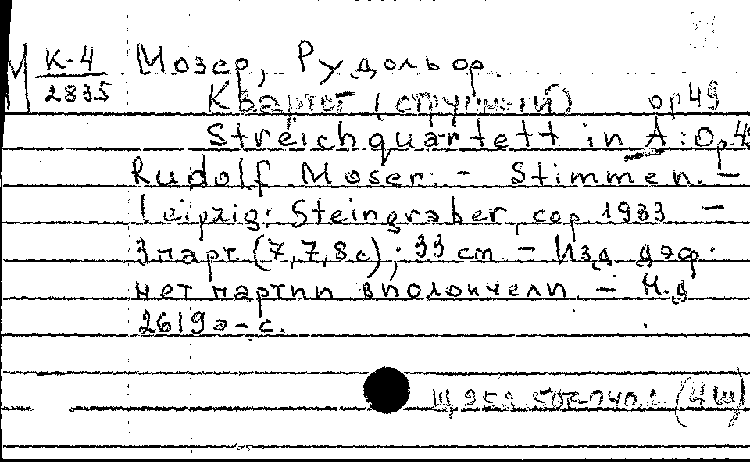 М К-4 Мозер, Рудольф.
2835
Квартет (струнный) ор 49
Streichquartett in A: Op. 4
Rudolf Moser. - Stimmen. -
Leipzig: Steingräber, cop 1933 -
3 парт (7, 7, 8 с); 33 cm - Изд. деф.
нет партии виолончели. - Н.д
2619 а-с.
Щ953 (4Ш)